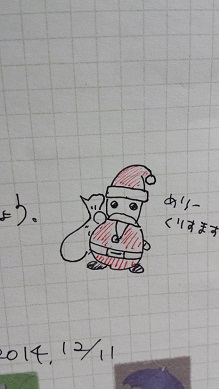 めりー
くりすます
よう。
2014.12/11